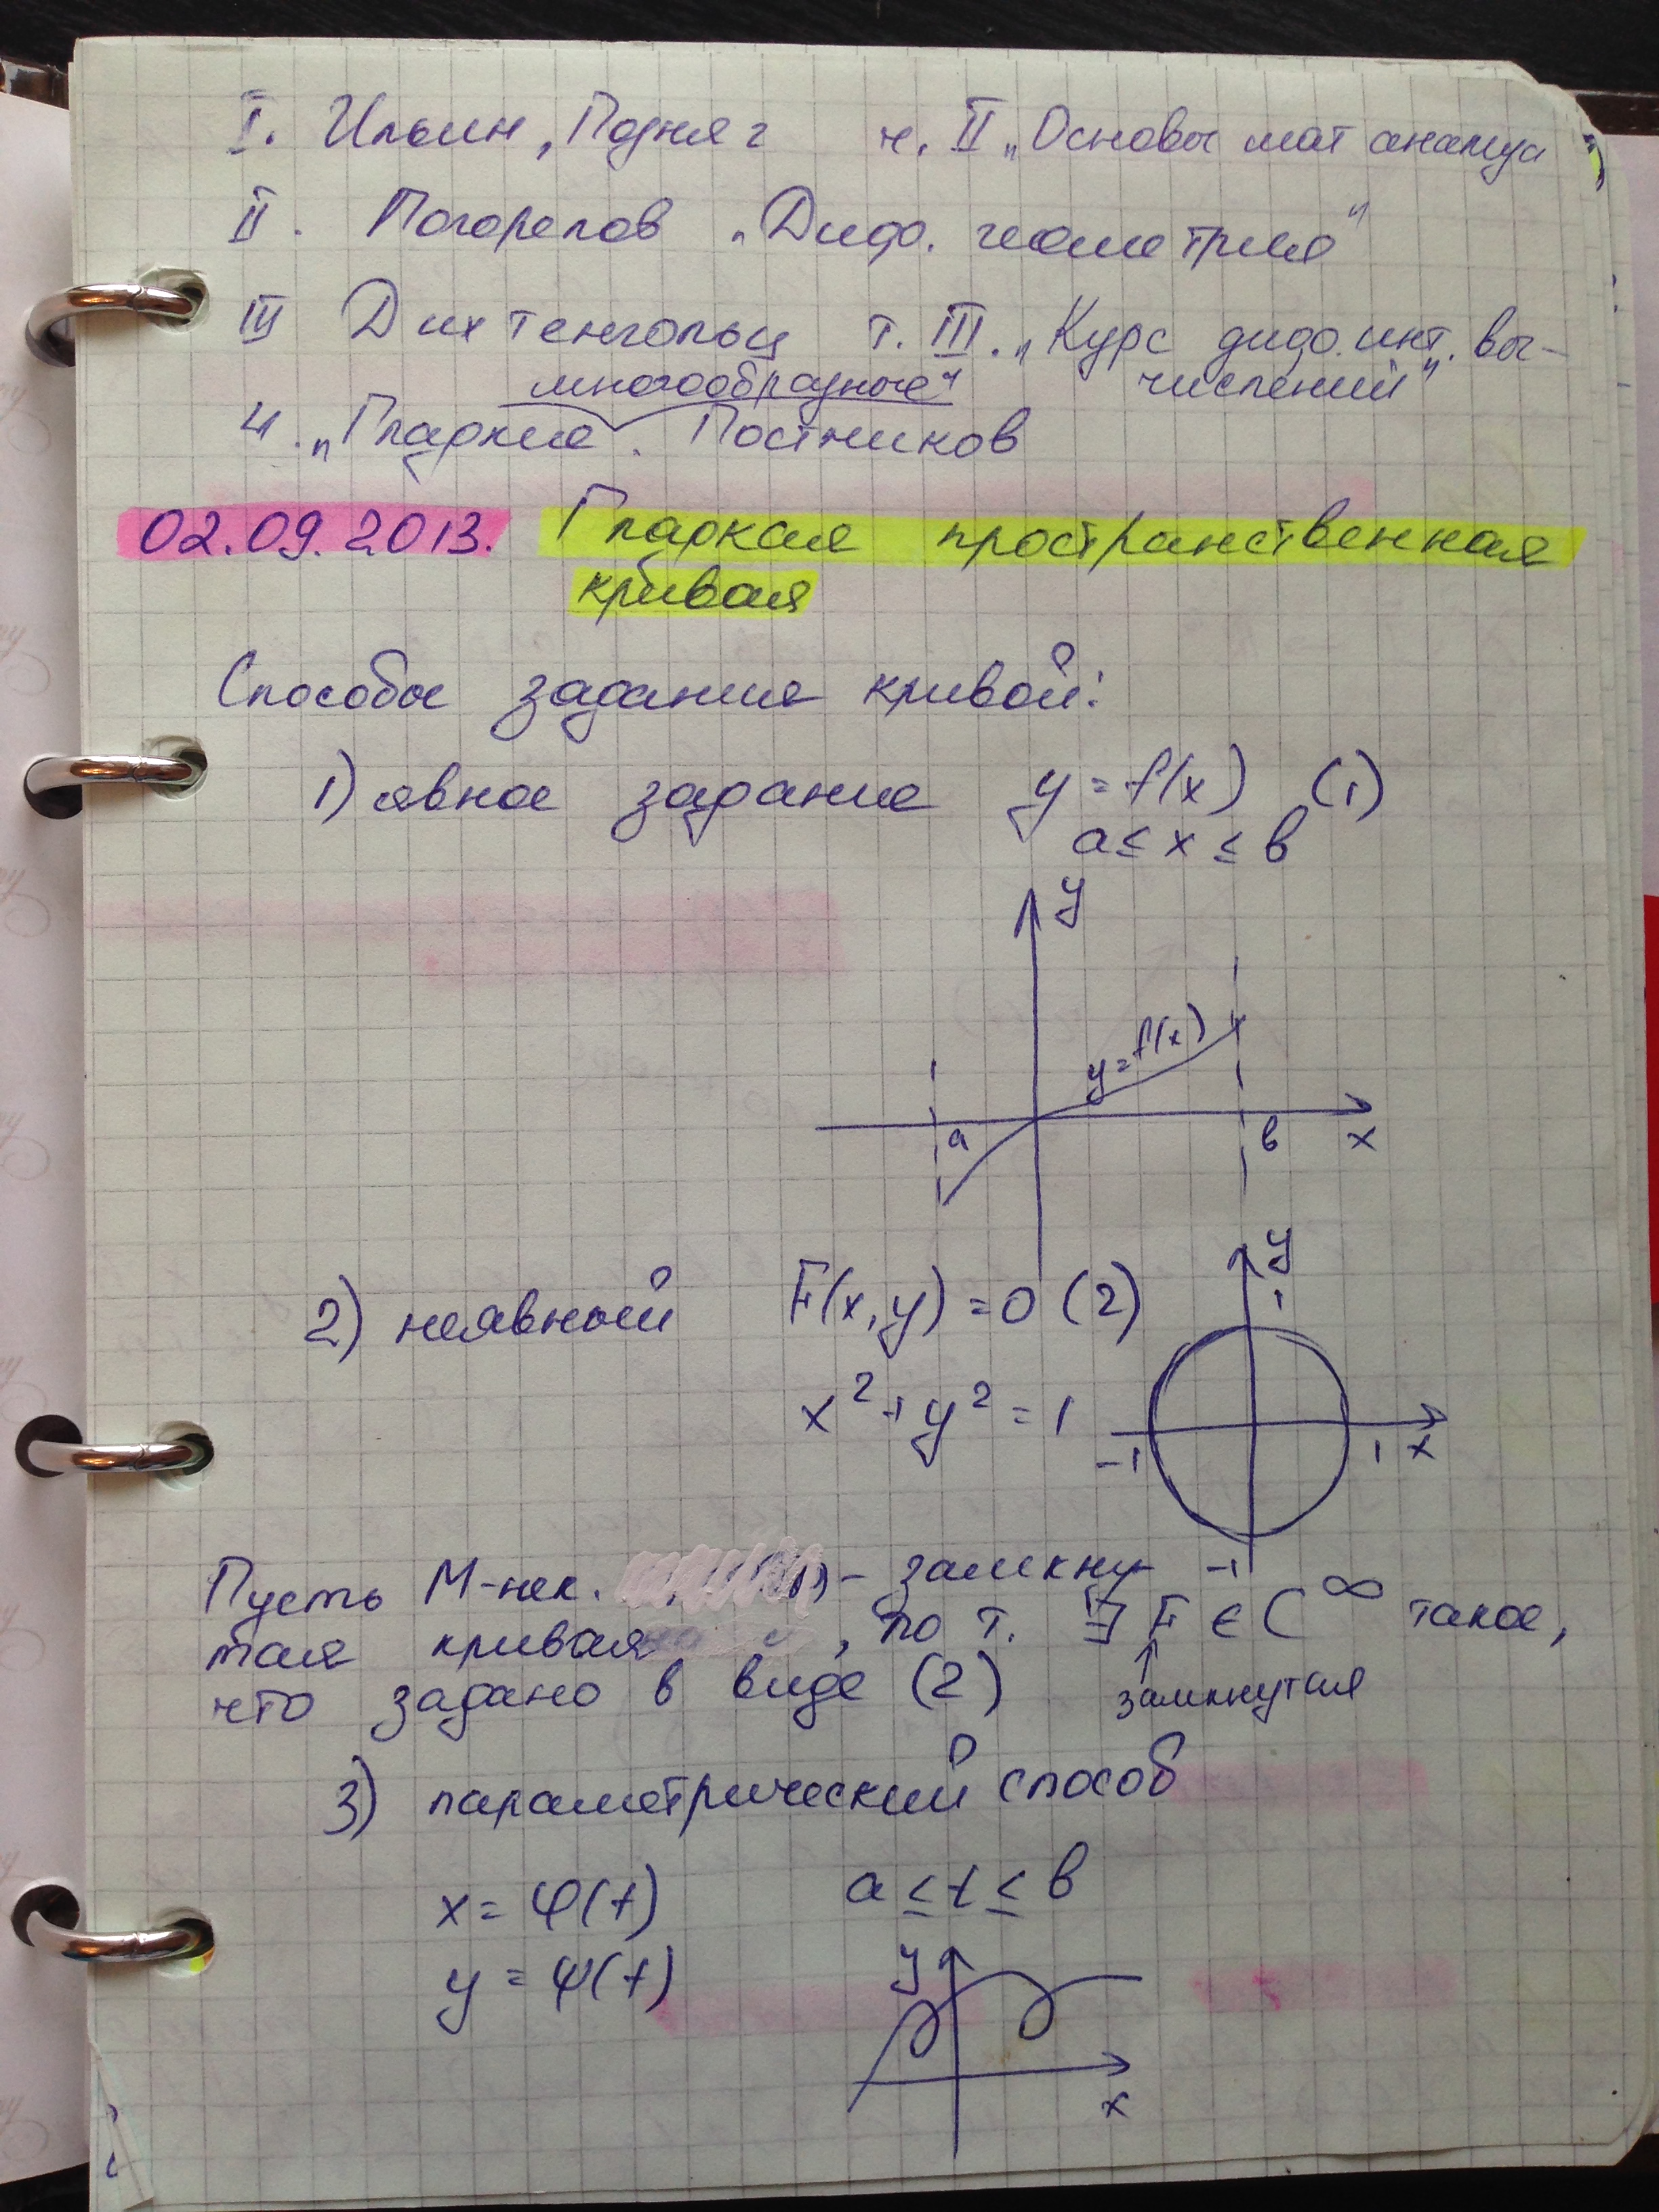 I. Ильин, Подняг ч. II „Основы мат анализа
II. Погорелов „Дифф. геометрия"
III Дихтенгольц т. III. „Курс дифф. инт. вы-
многообразные" числений"
4. „Гладкие . Постников
02.09.2013. Гладкая пространственная
кривая
Способы задания кривой:
1) явное задание y = f(x) (1)
a ≤ x ≤ b
y
y=f(x)
a b x
2) неявный F(x,y) = 0 (2)
y
1
x² + y² = 1
-1 1 x
-1
Пусть M-нек. - замкну-
тая кривая , по т. ∃ F ∈ C^∞ такое,
что задано в виде (2) замкнутая
3) параметрический способ
x = φ(t) a ≤ t ≤ b
y = ψ(t)
y
x